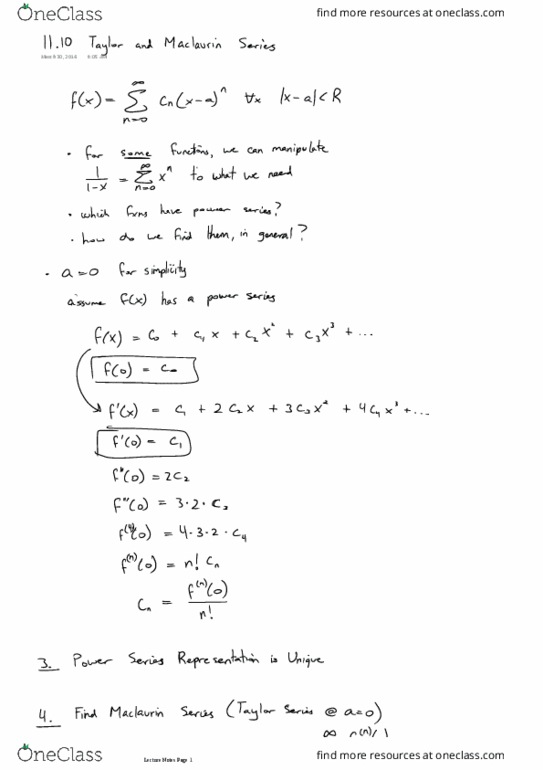 OneClass find more resources at oneclass.com
11.10 Taylor and Maclaurin Series
f(x) = ∞ Σ n=0 cₙ(x-a)ⁿ ∀x |x-a| < R
• for some functions, we can manipulate
1/(1-x) = ∞ Σ n=0 xⁿ to what we need
• which fxns have power series?
• how do we find them, in general?
• a=0 for simplicity
assume f(x) has a power series
f(x) = c₀ + c₁x + c₂x² + c₃x³ + ...
f(0) = c₀
f'(x) = c₁ + 2c₂x + 3c₃x² + 4c₄x³ + ...
f'(0) = c₁
f''(0) = 2c₂
f'''(0) = 3·2·c₃
f⁽⁴⁾(0) = 4·3·2·c₄
f⁽ⁿ⁾(0) = n! cₙ
cₙ = f⁽ⁿ⁾(0) / n!
3. Power Series Representation is Unique
4. Find Maclaurin Series (Taylor Series @ a=0)
∞
Lecture Notes Page 1
OneClass find more resources at oneclass.com